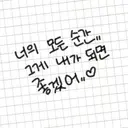 너의 모든 순간..
그게 내가 되면
좋겠어..♡